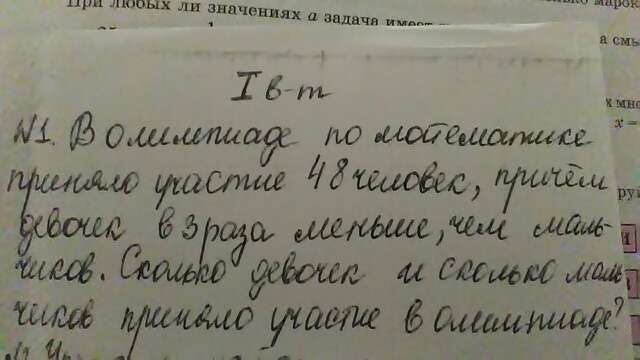 При любых ли значениях а задача имеет
I в-т
№1. В олимпиаде по математике
приняло участие 48 человек, причём
девочек в 3 раза меньше, чем маль-
чиков. Сколько девочек и сколько маль
чиков приняло участие в олимпиаде?